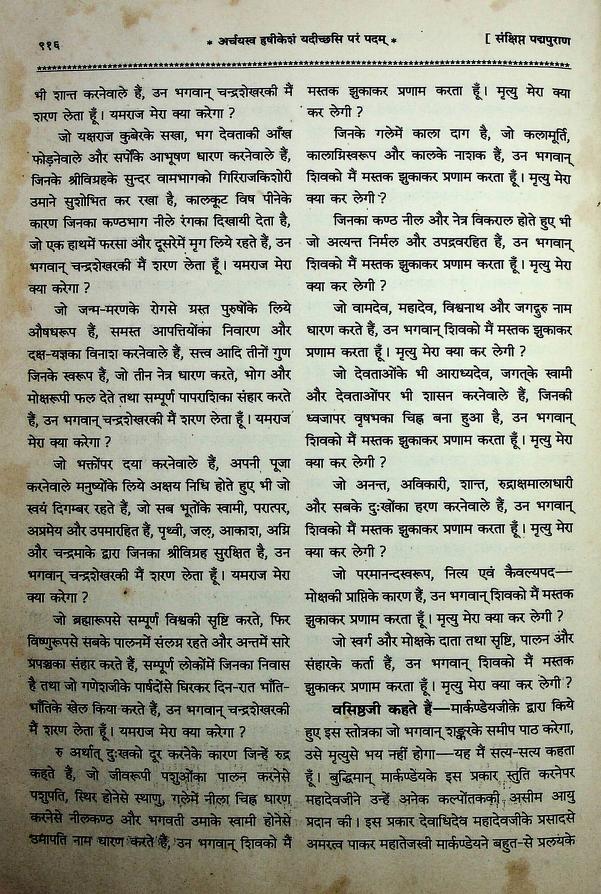 ९१६
* अर्चयस्व हृषीकेशं यदीच्छसि परं पदम् *
[ संक्षिप्त पद्मपुराण
भी शान्त करनेवाले हैं, उन भगवान् चन्द्रशेखरकी मैं
शरण लेता हूँ। यमराज मेरा क्या करेगा ?
जो यक्षराज कुबेरके सखा, भग देवताकी आँख
फोड़नेवाले और सर्पोंके आभूषण धारण करनेवाले हैं,
जिनके श्रीविग्रहके सुन्दर वामभागको गिरिराजकिशोरी
उमाने सुशोभित कर रखा है, कालकूट विष पीनेके
कारण जिनका कण्ठभाग नीले रंगका दिखायी देता है,
जो एक हाथमें फरसा और दूसरेमें मृग लिये रहते हैं, उन
भगवान् चन्द्रशेखरकी मैं शरण लेता हूँ। यमराज मेरा
क्या करेगा ?
जो जन्म-मरणके रोगसे ग्रस्त पुरुषोंके लिये
औषधरूप हैं, समस्त आपत्तियोंका निवारण और
दक्ष-यज्ञका विनाश करनेवाले हैं, सत्त्व आदि तीनों गुण
जिनके स्वरूप हैं, जो तीन नेत्र धारण करते, भोग और
मोक्षरूपी फल देते तथा सम्पूर्ण पापराशिका संहार करते
हैं, उन भगवान् चन्द्रशेखरकी मैं शरण लेता हूँ। यमराज
मेरा क्या करेगा ?
जो भक्तोंपर दया करनेवाले हैं, अपनी पूजा
करनेवाले मनुष्योंके लिये अक्षय निधि होते हुए भी जो
स्वयं दिगम्बर रहते हैं, जो सब भूतोंके स्वामी, परात्पर,
अप्रमेय और उपमारहित हैं, पृथ्वी, जल, आकाश, अग्नि
और चन्द्रमाके द्वारा जिनका श्रीविग्रह सुरक्षित है, उन
भगवान् चन्द्रशेखरकी मैं शरण लेता हूँ। यमराज मेरा
क्या करेगा ?
जो ब्रह्मारूपसे सम्पूर्ण विश्वकी सृष्टि करते, फिर
विष्णुरूपसे सबके पालनमें संलग्न रहते और अन्तमें सारे
प्रपञ्चका संहार करते हैं, सम्पूर्ण लोकोंमें जिनका निवास
है तथा जो गणेशजीके पार्षदोंसे घिरकर दिन-रात भाँति-
भाँतिके खेल किया करते हैं, उन भगवान् चन्द्रशेखरकी
मैं शरण लेता हूँ। यमराज मेरा क्या करेगा ?
रु अर्थात् दुःखको दूर करनेके कारण जिन्हें रुद्र
कहते हैं, जो जीवरूपी पशुओंका पालन करनेसे
पशुपति, स्थिर होनेसे स्थाणु, गलेमें नीला चिह्न धारण
करनेसे नीलकण्ठ और भगवती उमाके स्वामी होनेसे
उमापति नाम धारण करते हैं, उन भगवान् शिवको मैं
मस्तक झुकाकर प्रणाम करता हूँ। मृत्यु मेरा क्या
कर लेगी ?
जिनके गलेमें काला दाग है, जो कलामूर्ति,
कालाग्निस्वरूप और कालके नाशक हैं, उन भगवान्
शिवको मैं मस्तक झुकाकर प्रणाम करता हूँ। मृत्यु मेरा
क्या कर लेगी ?
जिनका कण्ठ नील और नेत्र विकराल होते हुए भी
जो अत्यन्त निर्मल और उपद्रवरहित हैं, उन भगवान्
शिवको मैं मस्तक झुकाकर प्रणाम करता हूँ। मृत्यु मेरा
क्या कर लेगी ?
जो वामदेव, महादेव, विश्वनाथ और जगद्गुरु नाम
धारण करते हैं, उन भगवान् शिवको मैं मस्तक झुकाकर
प्रणाम करता हूँ। मृत्यु मेरा क्या कर लेगी ?
जो देवताओंके भी आराध्यदेव, जगत्‌के स्वामी
और देवताओंपर भी शासन करनेवाले हैं, जिनकी
ध्वजापर वृषभका चिह्न बना हुआ है, उन भगवान्
शिवको मैं मस्तक झुकाकर प्रणाम करता हूँ। मृत्यु मेरा
क्या कर लेगी ?
जो अनन्त, अविकारी, शान्त, रुद्राक्षमालाधारी
और सबके दुःखोंका हरण करनेवाले हैं, उन भगवान्
शिवको मैं मस्तक झुकाकर प्रणाम करता हूँ। मृत्यु मेरा
क्या कर लेगी ?
जो परमानन्दस्वरूप, नित्य एवं कैवल्यपद—
मोक्षकी प्राप्तिके कारण हैं, उन भगवान् शिवको मैं मस्तक
झुकाकर प्रणाम करता हूँ। मृत्यु मेरा क्या कर लेगी ?
जो स्वर्ग और मोक्षके दाता तथा सृष्टि, पालन और
संहारके कर्ता हैं, उन भगवान् शिवको मैं मस्तक
झुकाकर प्रणाम करता हूँ। मृत्यु मेरा क्या कर लेगी ?
वसिष्ठजी कहते हैं—मार्कण्डेयजीके द्वारा किये
हुए इस स्तोत्रका जो भगवान् शङ्करके समीप पाठ करेगा,
उसे मृत्युसे भय नहीं होगा—यह मैं सत्य-सत्य कहता
हूँ। बुद्धिमान् मार्कण्डेयके इस प्रकार स्तुति करनेपर
महादेवजीने उन्हें अनेक कल्पोंतककी असीम आयु
प्रदान की। इस प्रकार देवाधिदेव महादेवजीके प्रसादसे
अमरत्व पाकर महातेजस्वी मार्कण्डेयने बहुत-से प्रलयके